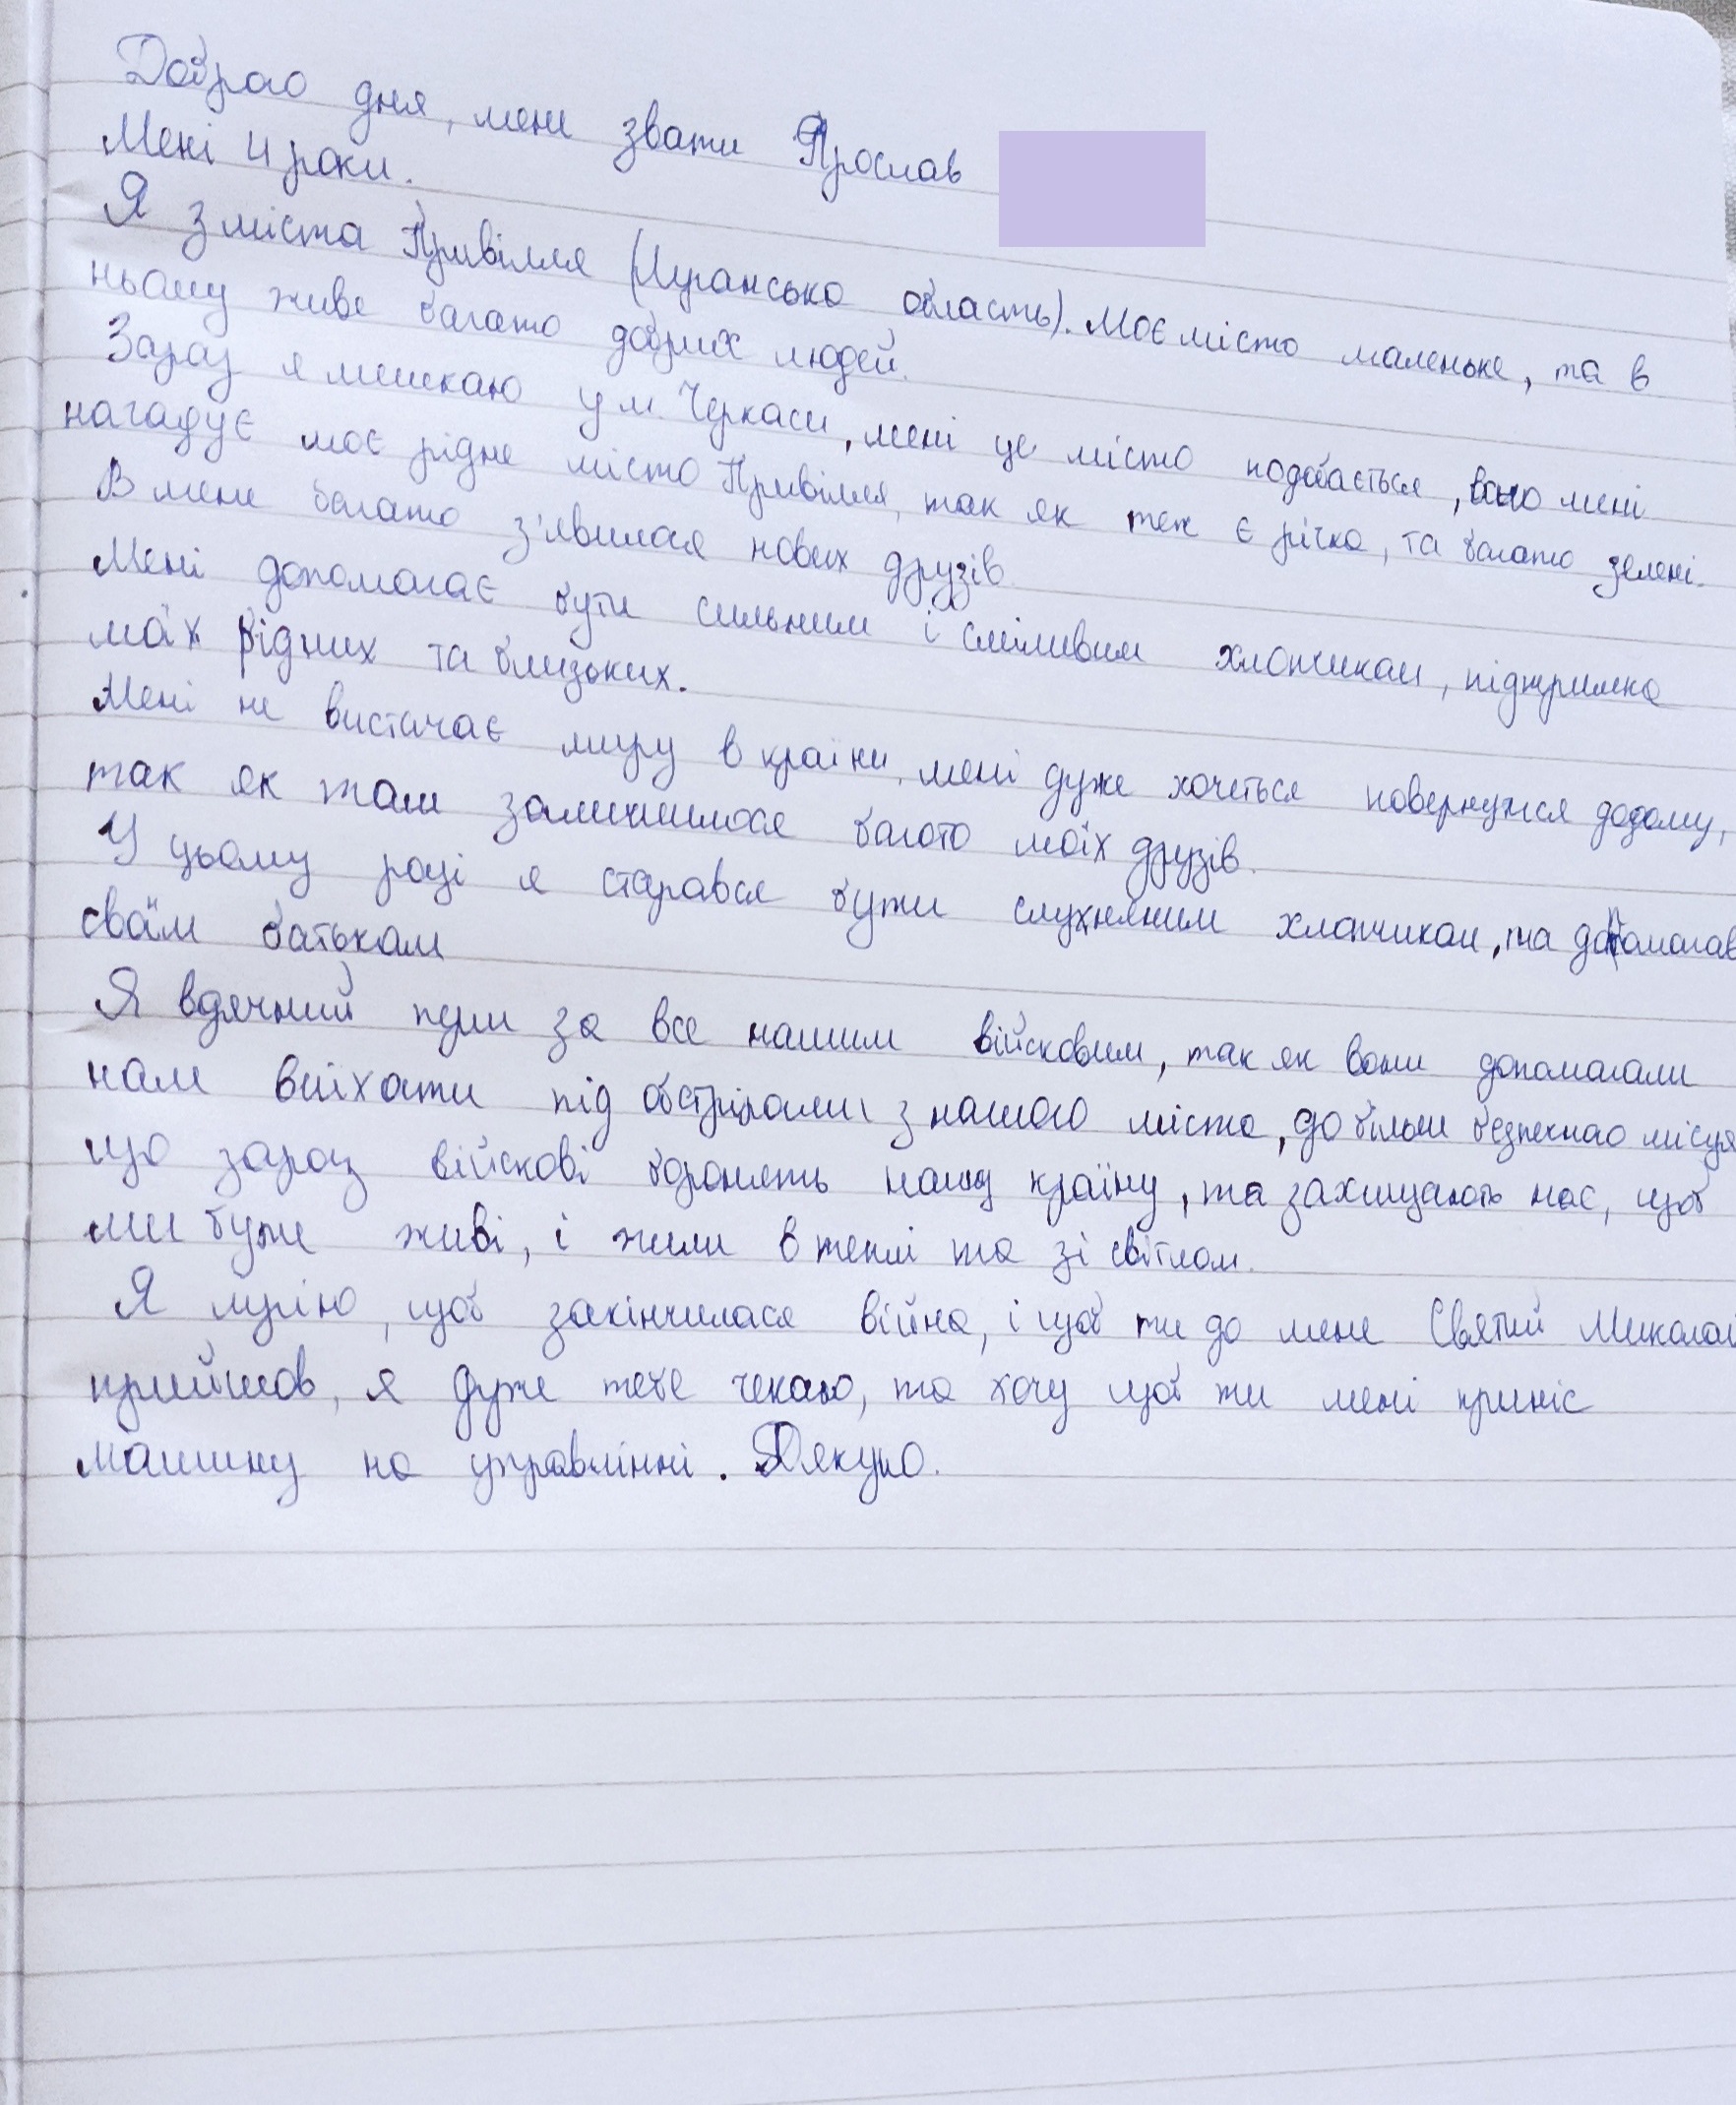 Доброго дня, мене звати Ярослав
Мені 4 роки.
Я з міста Привілля (Луганська область). Моє місто маленьке, та в
ньому живе багато добрих людей.
Зараз я мешкаю у м. Черкаси, мені це місто подобається, воно мені
нагадує моє рідне місто Привілля, так як теж є річка, та багато зелені.
В мене багато з'явилося нових друзів.
Мені допомагає бути сильним і сміливим хлопчиком, підтримка
моїх рідних та близьких.
Мені не вистачає миру в країни, мені дуже хочеться повернутися додому,
так як там залишилося багато моїх друзів.
У цьому році я старався бути слухняним хлопчиком, та допомагав
своїм батькам
Я вдячний перш за все нашим військовим, так як вони допомагали
нам виїхати під обстрілами з нашого міста, до більш безпечного місця
що зараз військові боронять нашу країну, та захищають нас, щоб
ми були живі, і жили в теплі та зі світлом.
Я мрію, щоб закінчилася війна, і щоб ти до мене Святий Миколай
прийшов, я дуже тебе чекаю, та хочу щоб ти мені приніс
машину на управлінні. Дякую.